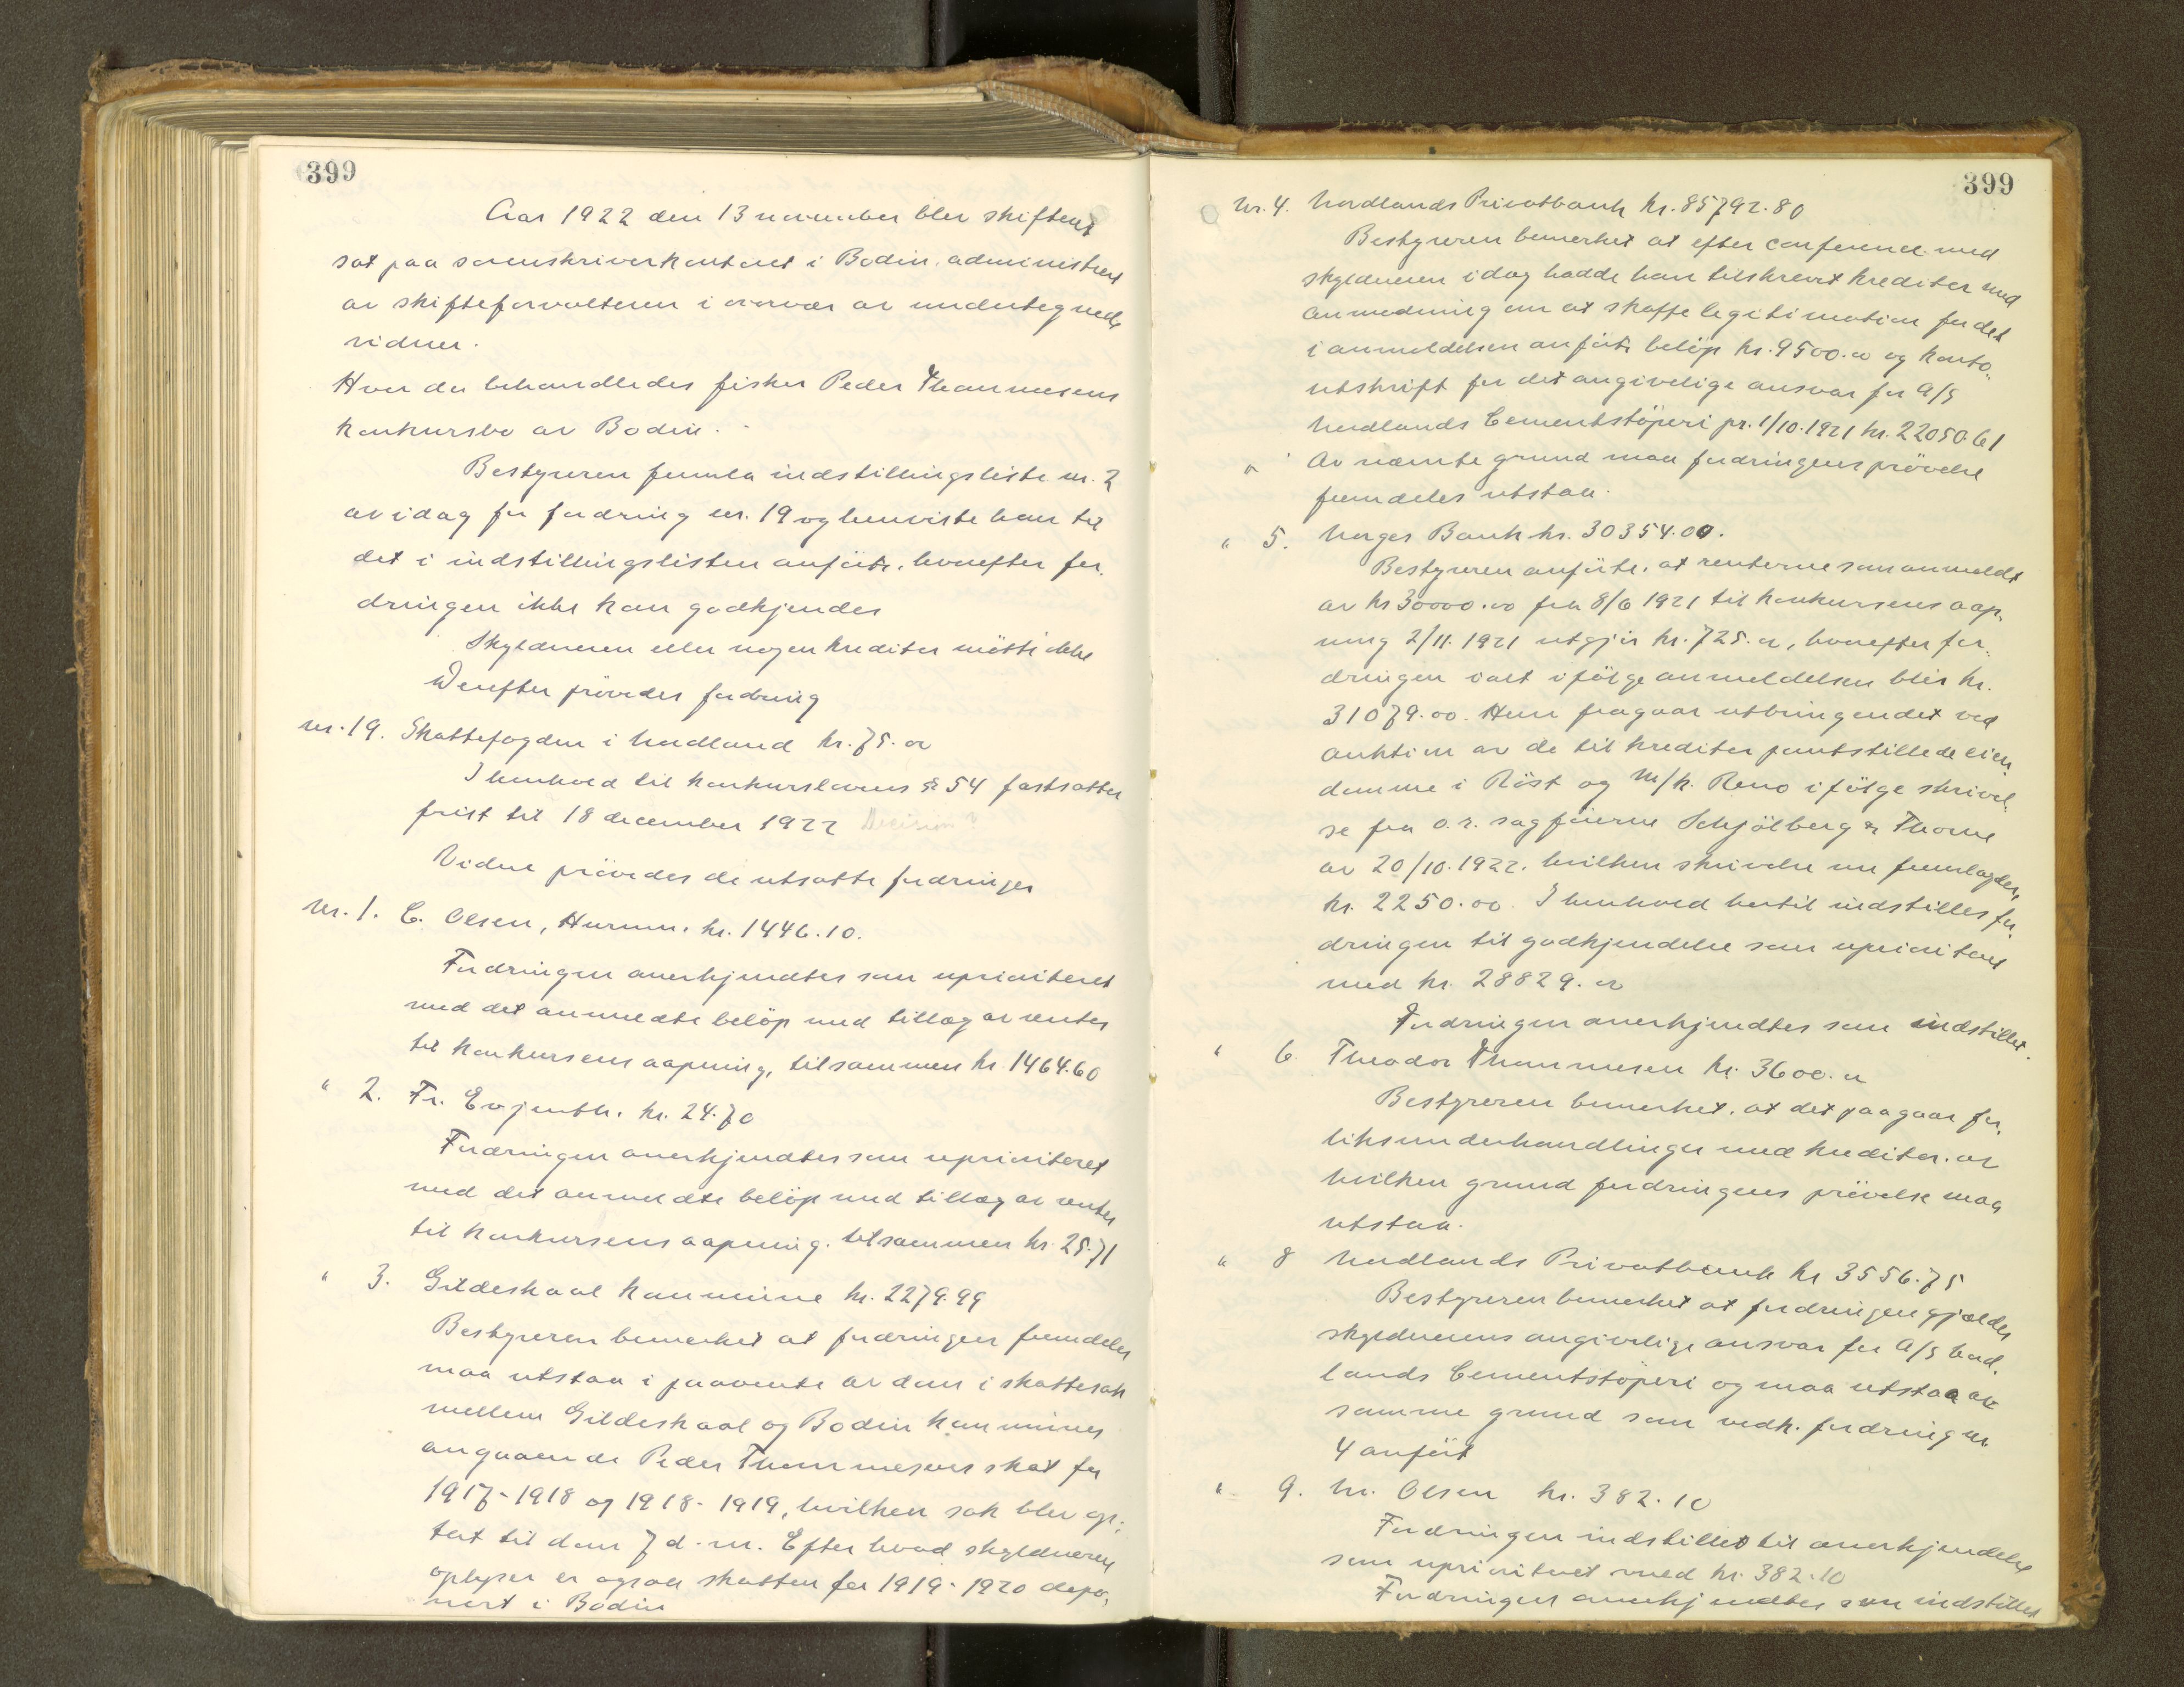 399
Aar 1922 den 13 november blev skifteret
sat paa sorenskriverkontoret i Bodin administrert
av skifteforvalteren i overvær av undertegnede
vidner.
Hvor da behandledes fisker Peder Thommesens
konkursbo av Bodin.
Bestyreren fremla indstillingsliste nr. 2
av idag for fordring nr. 19 og henviste han til
det i indstillingslisten anförte, hvorefter for-
dringen ikke kan godkjendes
Skyldneren eller nogen kreditor mötte ikke
Derefter prövedes fordring
nr. 19. Skattefogden i Nordland kr. 75.00
I henhold til konkurslovens § 54 fastsattes
frist til 18 december 1922 Decision?
Videre prövedes de utsatte fordringer
nr. 1. C. Olsen, Hurum. kr. 1446.10.
Fordringen anerkjendtes som uprioriteret
med det anmeldte belöp med tillæg av renter
til konkursens aapning, tilsammen kr. 1464.60
" 2. Fr. Evjenth. kr. 24.70
Fordringen anerkjendtes som uprioriteret
med det anmeldte belöp med tillæg av renter
til konkursens aapning. tilsammen kr. 25.71
" 3. Gildeskaal kommune kr. 2279.99
Bestyreren bemerket at fordringen fremdeles
maa utstaa i paavente av dom i skattesak
mellem Gildeskaal og Bodin kommuner
angaaende Peder Thommesens skat for
1917-1918 og 1918-1919, hvilken sak blev op-
tat til dom 7 d.m. Efter hvad skyldneren
oplyser er ogsaa skatten for 1919-1920 depo-
nert i Bodin
399
Nr. 4. Nordlands Privatbank kr. 85792.80
Bestyreren bemerket at efter conference med
skyldneren idag hadde han tilskrevet kreditor med
anmodning om at skaffe legitimation for det
i anmeldelsen anförte belöp kr. 9500.00 og konto-
utskrift for det angivelige ansvar for A/S
Nordlands Cementstöperi pr. 1/10.1921 kr. 22050.61
" Av nævnte grund maa fordringens prövelse
fremdeles utstaa.
" 5. Norges Bank kr. 30354.00.
Bestyreren anförte, at renterne som anmeldt
av kr 30000.00 fra 8/6 1921 til konkursens aap-
ning 2/11.1921 utgjör kr. 725.00, hvorefter for-
dringen ialt ifölge anmeldelsen blir kr.
31079.00. Herav fragaar utbringendet ved
auktion av de til kreditor pantstillede eien-
domme i Röst og M/k. Reno ifölge skrivel-
se fra o.r. sagförerne Schjölberg & Thorne
av 20/10.1922. hvilken skrivelse nu fremlagdes,
kr. 2250.00. I henhold hertil indstilles for-
dringen til godkjendelse som uprioriteret
med kr. 28829.00
Fordringen anerkjendtes som indstillet.
" 6 Theodor Thommesen kr. 3600.00
Bestyreren bemerket, at det paagaar for-
liksunderhandlinger med kreditor. av
hvilken grund fordringens prövelse maa
utstaa.
" 8 Nordlands Privatbank kr 3556.75
Bestyreren bemerket at fordringen gjælder
skyldnerens angivelige ansvar for A/S Nord-
lands Cementstöperi og maa utstaa av
samme grund som vedk. fordring nr.
4 anfört
" 9. Olsen kr. 382.10
Fordringen indstilles til anerkjendelse
som uprioriteret med kr. 382.10
Fordringen anerkjendtes som indstillet